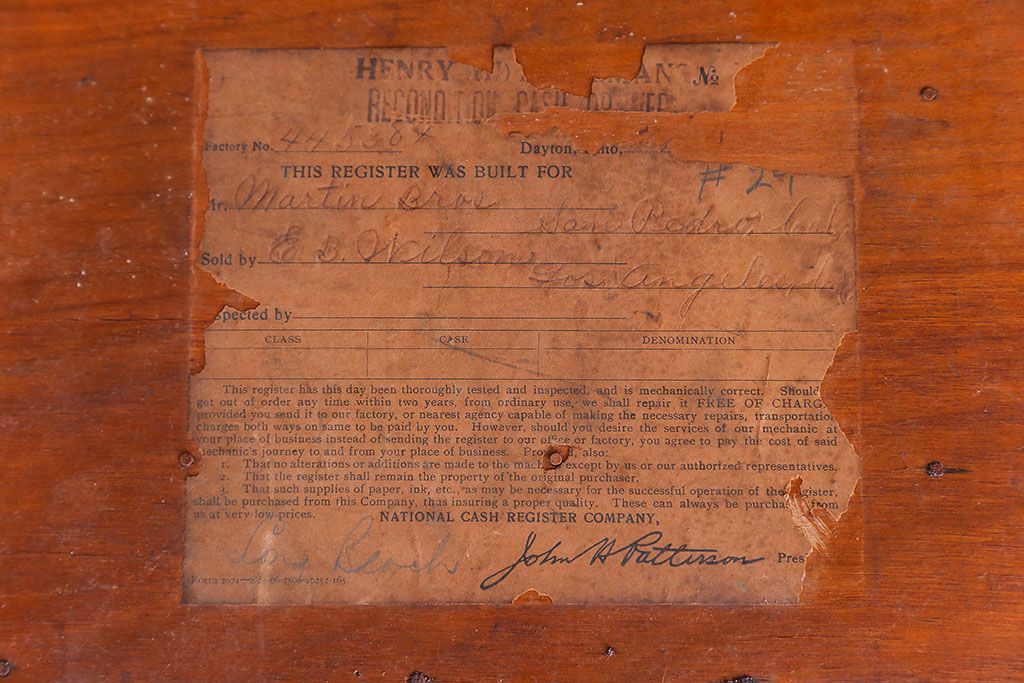 HENRY No
RECONDITION CASH
Factory No. 445384
Dayton,
THIS REGISTER WAS BUILT FOR # 29
Martin Bros
San Pedro, Cal.
Sold by E. B. Wilson
Los Angeles,
spected by
CLASS CASE DENOMINATION
This register has this day been thoroughly tested and inspected, and is mechanically correct. Should
get out of order any time within two years, from ordinary use, we shall repair it FREE OF CHARG
provided you send it to our factory, or nearest agency capable of making the necessary repairs, transportation
charges both ways on same to be paid by you. However, should you desire the services of our mechanic at
your place of business instead of sending the register to our office or factory, you agree to pay the cost of said
mechanic's journey to and from your place of business. Prov d, also:
1. That no alterations or additions are made to the mach except by us or our authorized representatives.
2. That the register shall remain the property of the original purchaser.
3. That such supplies of paper, ink, etc., as may be necessary for the successful operation of the register,
shall be purchased from this Company, thus insuring a proper quality. These can always be purchas from
us at very low prices. NATIONAL CASH REGISTER COMPANY,
Long Beach John H Patterson Pres
Form 2074